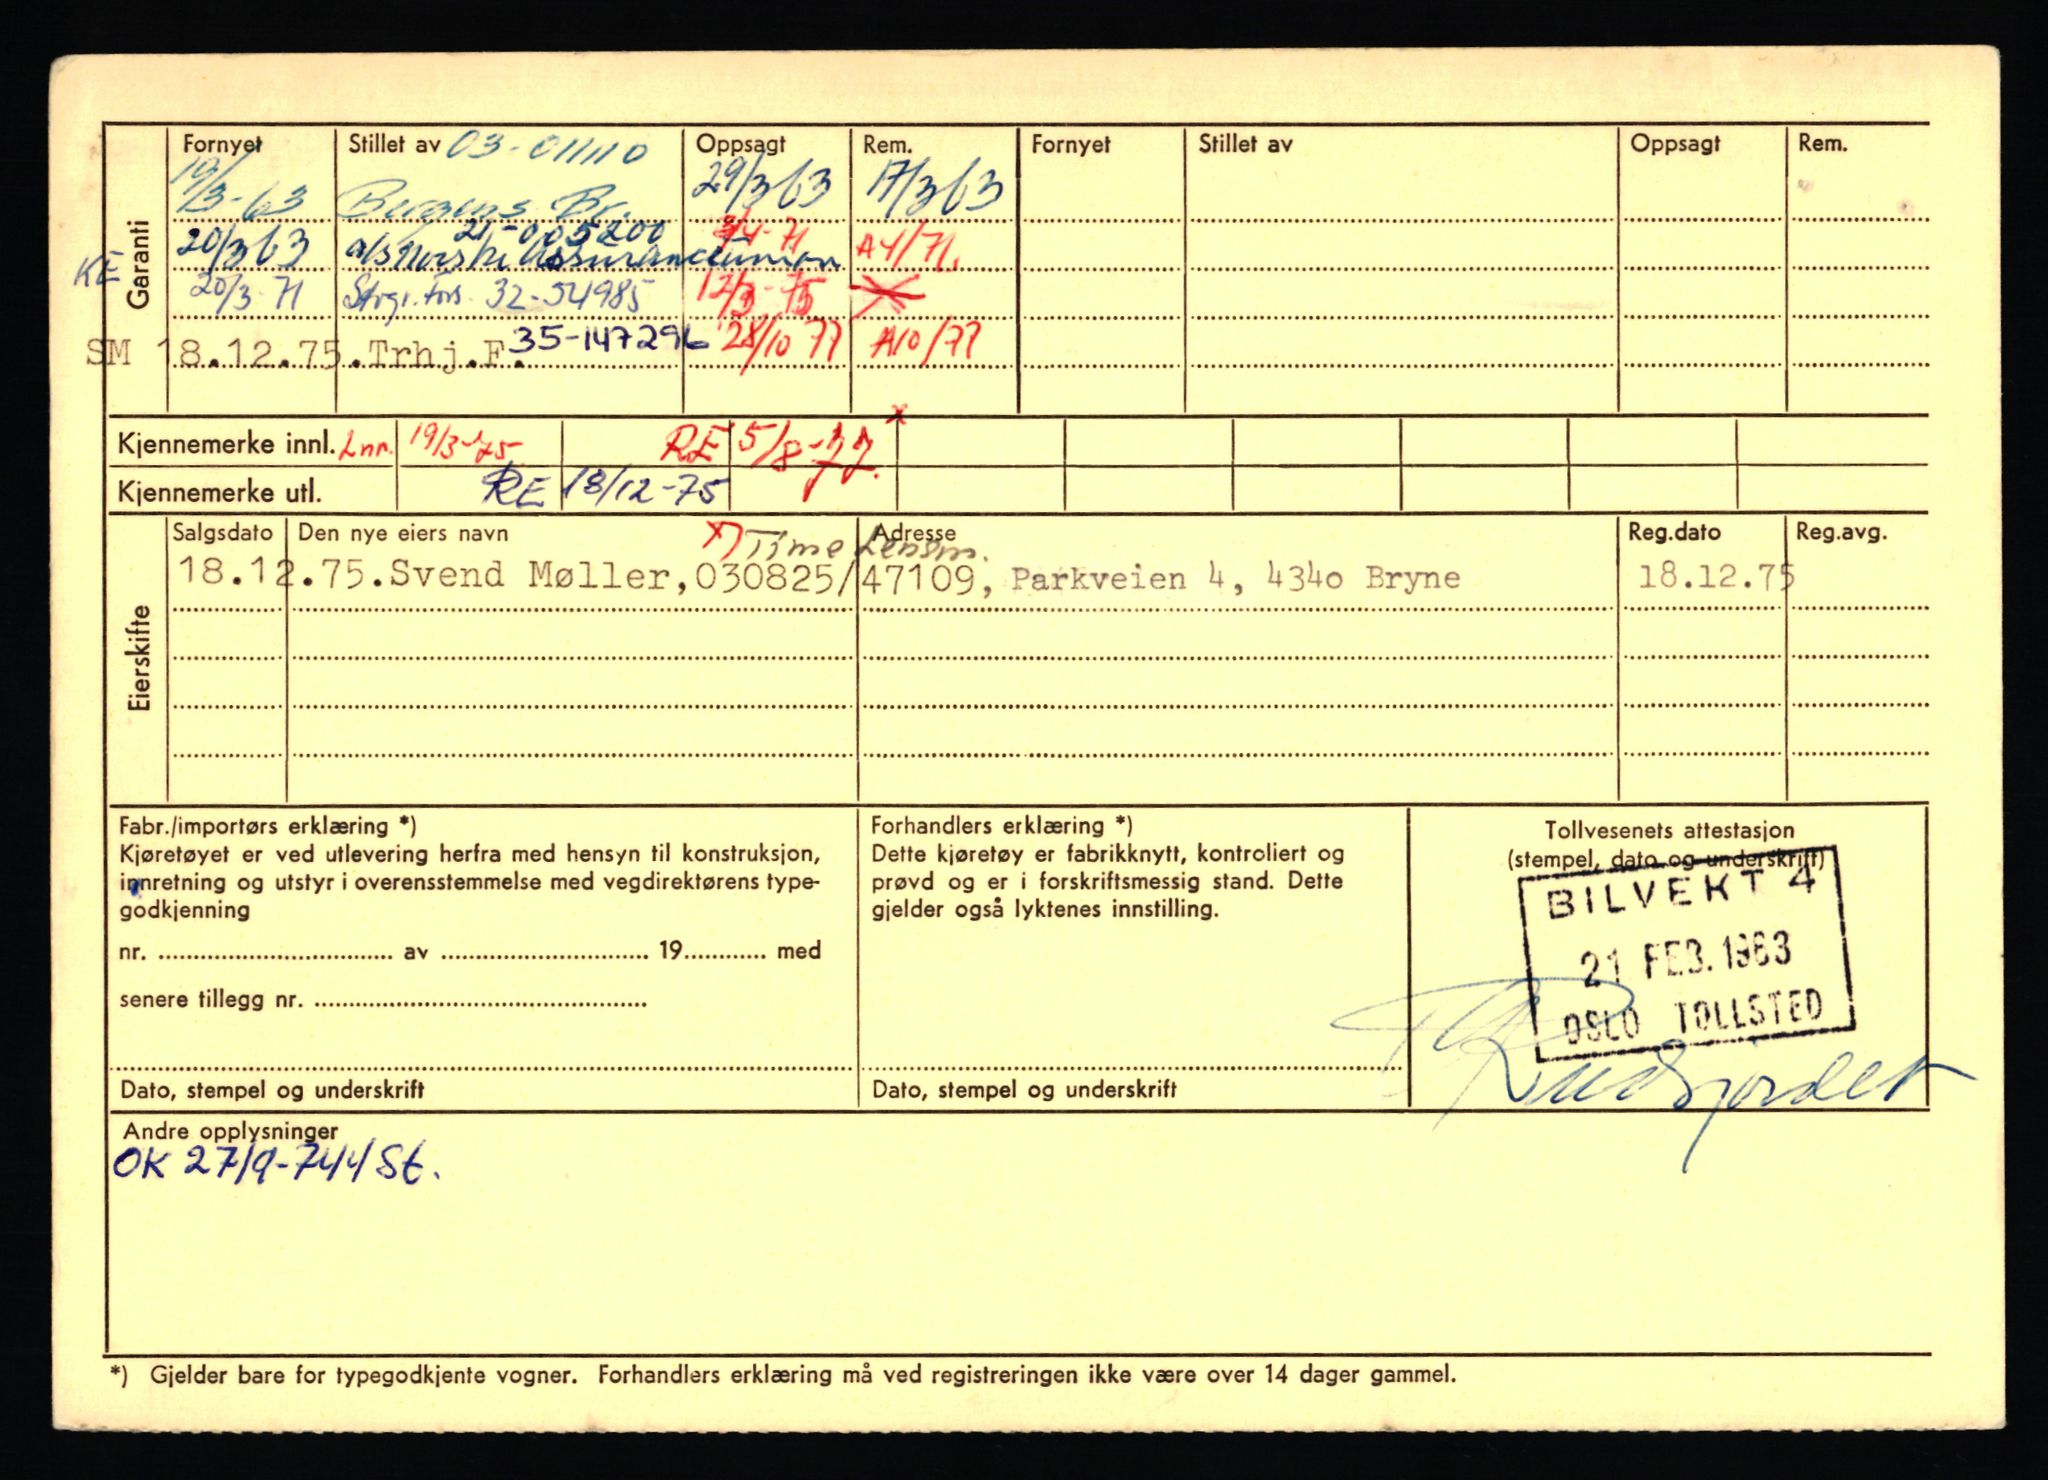 Garanti
Fornyet Stillet av 03-011110 Oppsagt Rem. Fornyet Stillet av Oppsagt Rem.
19/3-63 Bergens Br. 29/3 63 17/3 63
21-005200
20/3 63 a/s Norske Assuranceunion 3/4-71 A4/71.
KE 20/3-71 Strgr. fors. 32-54985 12/3-75
SM 18.12.75. Trhj.F. 35-147296 28/10 77 A10/77
Kjennemerke innl. Lnr. 19/3-75 RE 5/8-77. x
Kjennemerke utl. RE 18/12-75
Eierskifte
Salgsdato Den nye eiers navn x) Time Lensm. Adresse Reg.dato Reg.avg.
18.12.75. Svend Møller, 030825/47109, Parkveien 4, 4340 Bryne 18.12.75
Fabr./importørs erklæring *)
Kjøretøyet er ved utlevering herfra med hensyn til konstruksjon,
innretning og utstyr i overensstemmelse med vegdirektørens type-
godkjenning
nr. .................... av .................... 19............ med
senere tillegg nr. ....................
Dato, stempel og underskrift
Forhandlers erklæring *)
Dette kjøretøy er fabrikknytt, kontroliert og
prøvd og er i forskriftsmessig stand. Dette
gjelder også lyktenes innstilling.
Dato, stempel og underskrift
Tollvesenets attestasjon
(stempel, dato og underskrift)
BILVEKT 4
21 FEB. 1963
OSLO TOLLSTED
Andre opplysninger
OK 27/9-744 St.
*) Gjelder bare for typegodkjente vogner. Forhandlers erklæring må ved registreringen ikke være over 14 dager gammel.